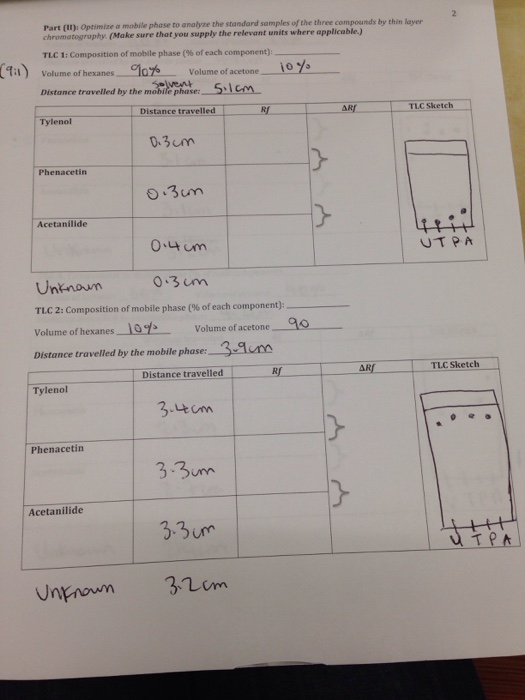 2
Part (II): Optimize a mobile phase to analyze the standard samples of the three compounds by thin layer
chromatography. (Make sure that you supply the relevant units where applicable.)
TLC 1: Composition of mobile phase (% of each component):
(9:1) Volume of hexanes 90% Volume of acetone 10%
solvent
Distance travelled by the mobile phase: 5.1cm
Distance travelled Rf ΔRf TLC Sketch
Tylenol
0.3cm
Phenacetin
0.3cm
Acetanilide
0.4cm
U T P A
Unknown 0.3cm
TLC 2: Composition of mobile phase (% of each component):
Volume of hexanes 10% Volume of acetone 90
Distance travelled by the mobile phase: 3.9cm
Distance travelled Rf ΔRf TLC Sketch
Tylenol
3.4cm
Phenacetin
3.3cm
Acetanilide
3.3cm
U T P A
Unknown 3.2cm